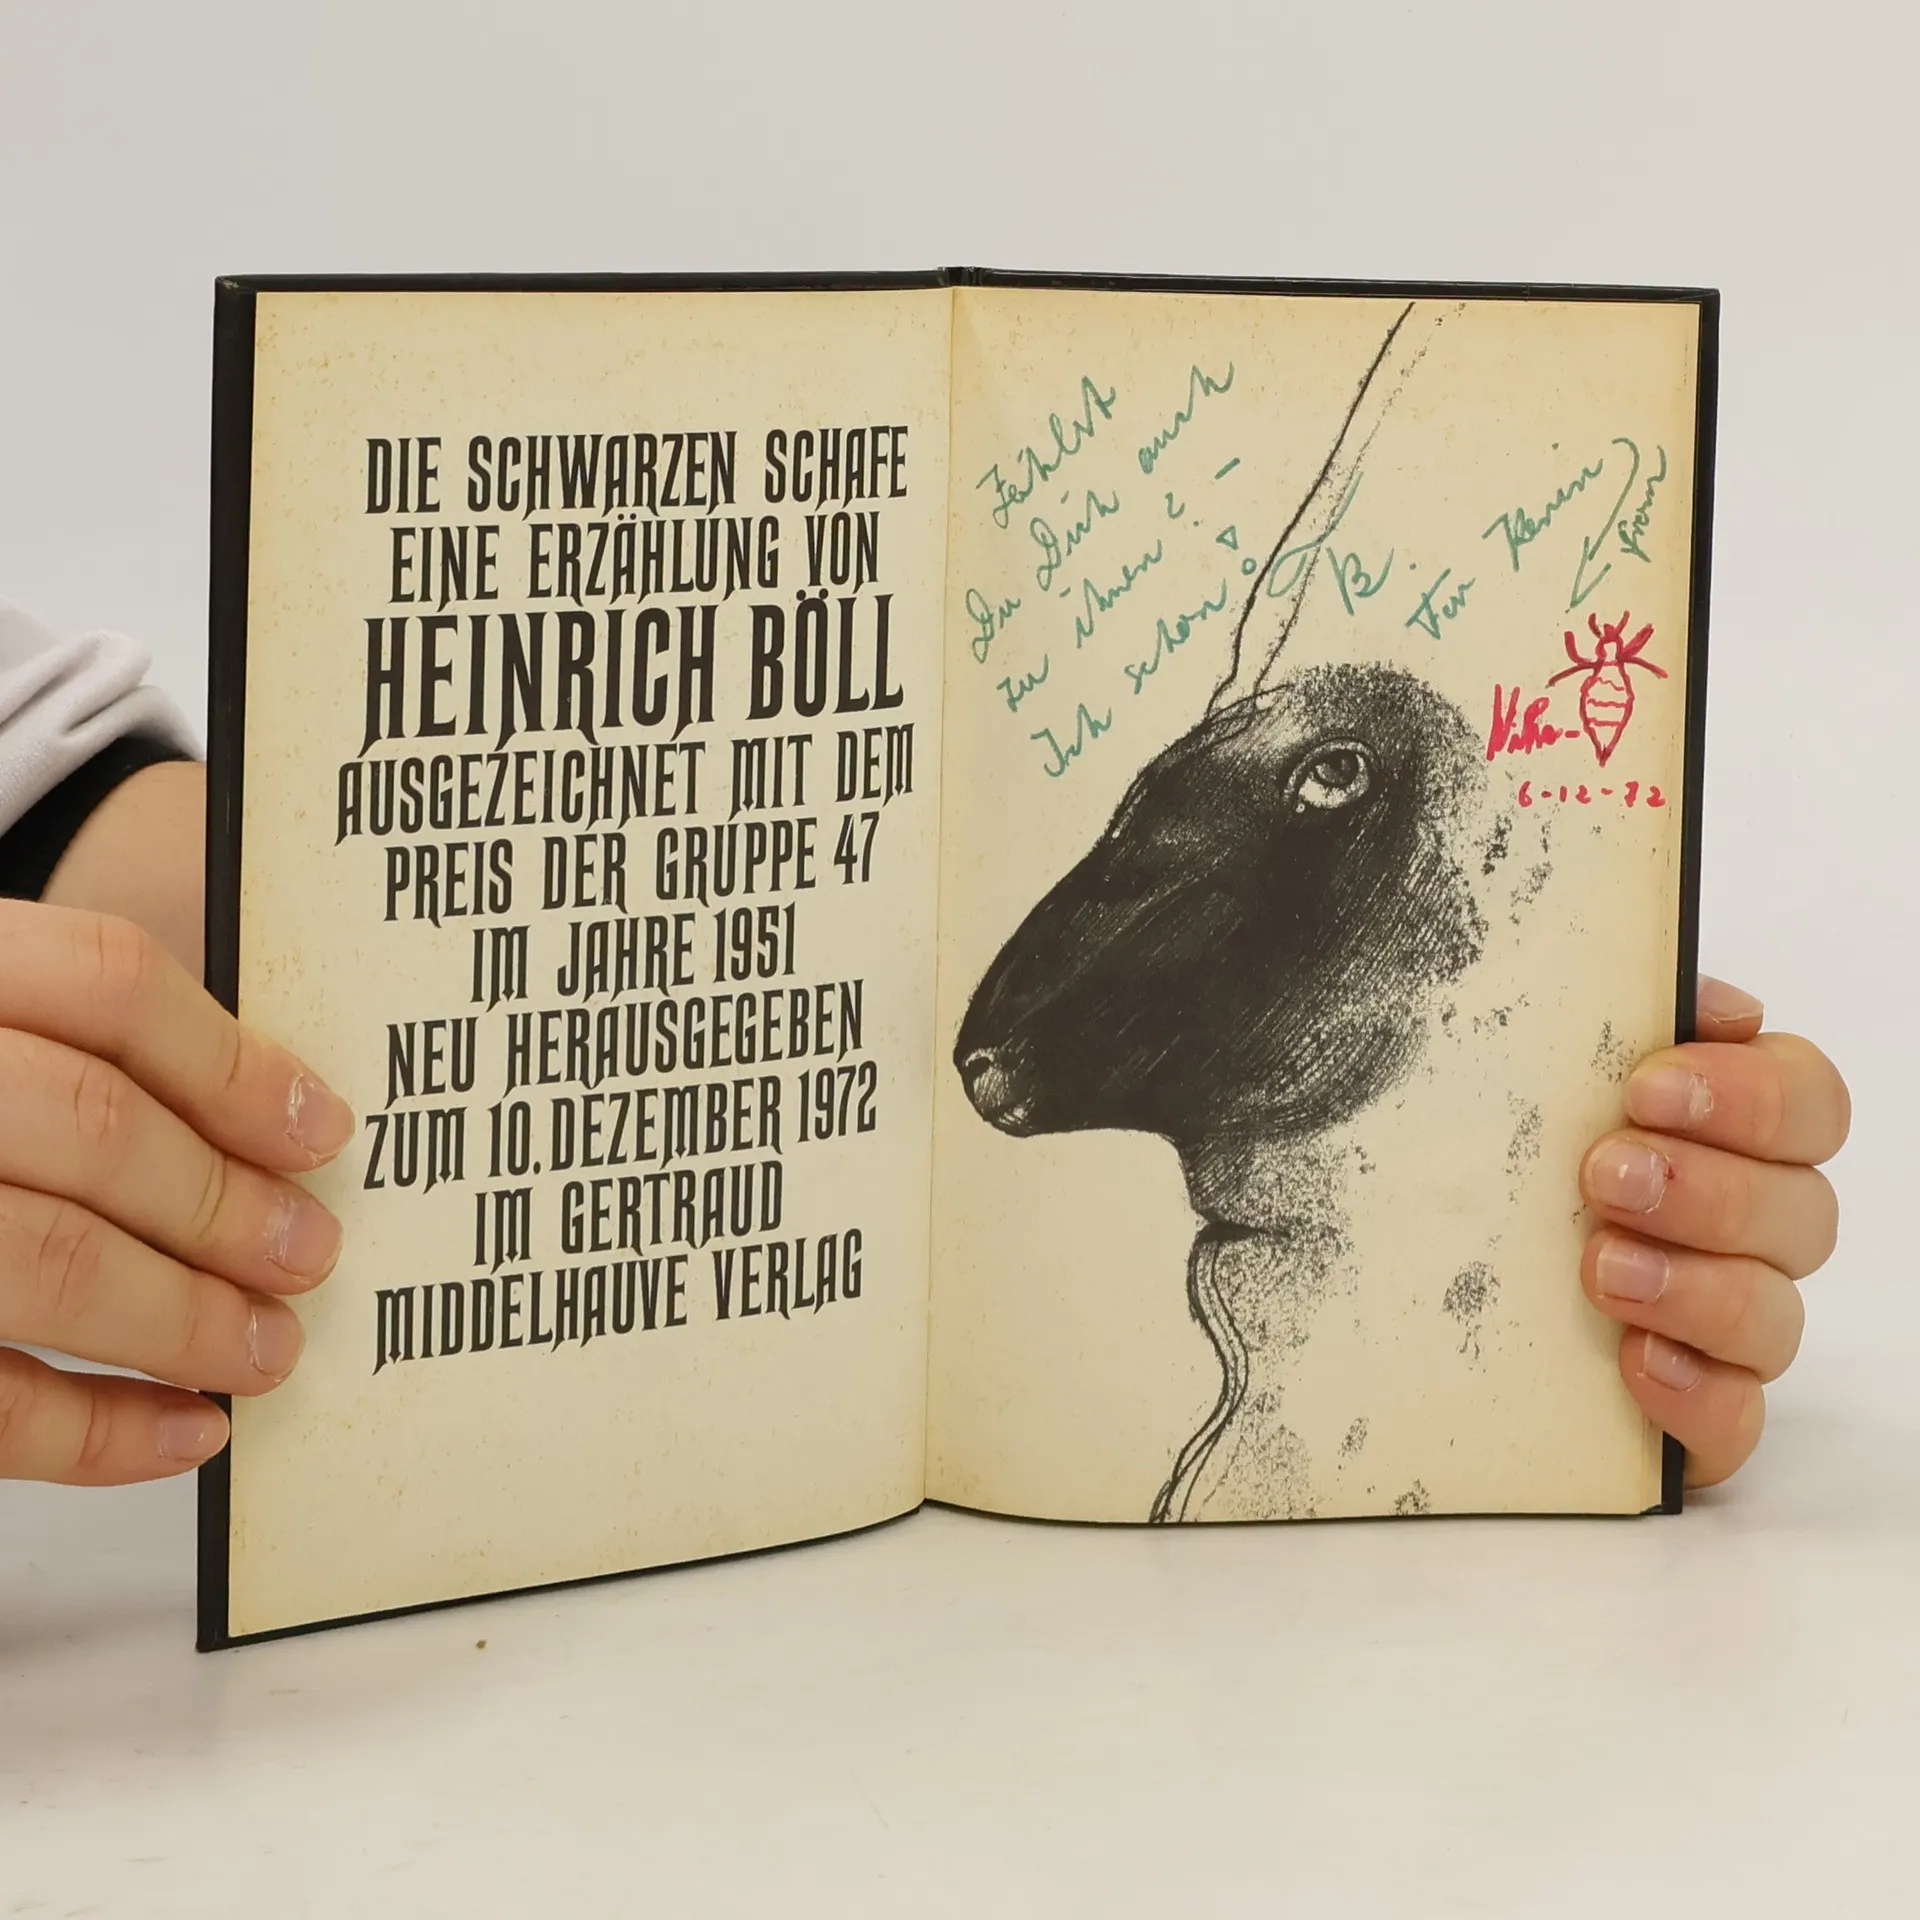 DIE SCHWARZEN SCHAFE
EINE ERZÄHLUNG VON
HEINRICH BÖLL
AUSGEZEICHNET MIT DEM
PREIS DER GRUPPE 47
IM JAHRE 1951
NEU HERAUSGEGEBEN
ZUM 10. DEZEMBER 1972
IM GERTRAUD
MIDDELHAUVE VERLAG
Zählst
Du Dich auch
zu ihnen? -
Ich schon!
B.
For Kevin
from
6-12-72